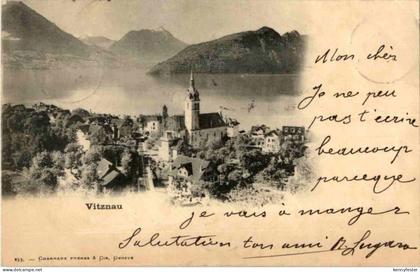 Mon chèr
Je ne peu
pas t'ecrire
beaucoup
parceque
je vais à manger
Salutation ton ami
Vitznau
Charnaux Frères & Cie, Genève